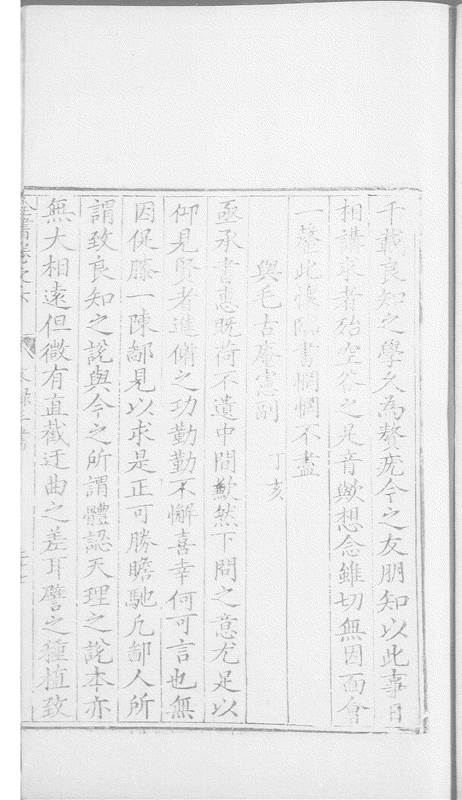 千載良知之學久為贅疣今之友朋知以此事日
相講求者殆空谷之足音歟想念雖切無因面會
一罄此懷臨書惘惘不盡
與毛古庵憲副 丁亥
亟承書惠既荷不遺中間歉然下問之意尤足以
仰見賢者進脩之功勤勤不懈喜幸何可言也無
因促膝一陳鄙見以求是正可勝瞻馳凡鄙人所
謂致良知之說與今之所謂體認天理之說本亦
無大相遠但微有直截迂曲之差耳譬之種植致